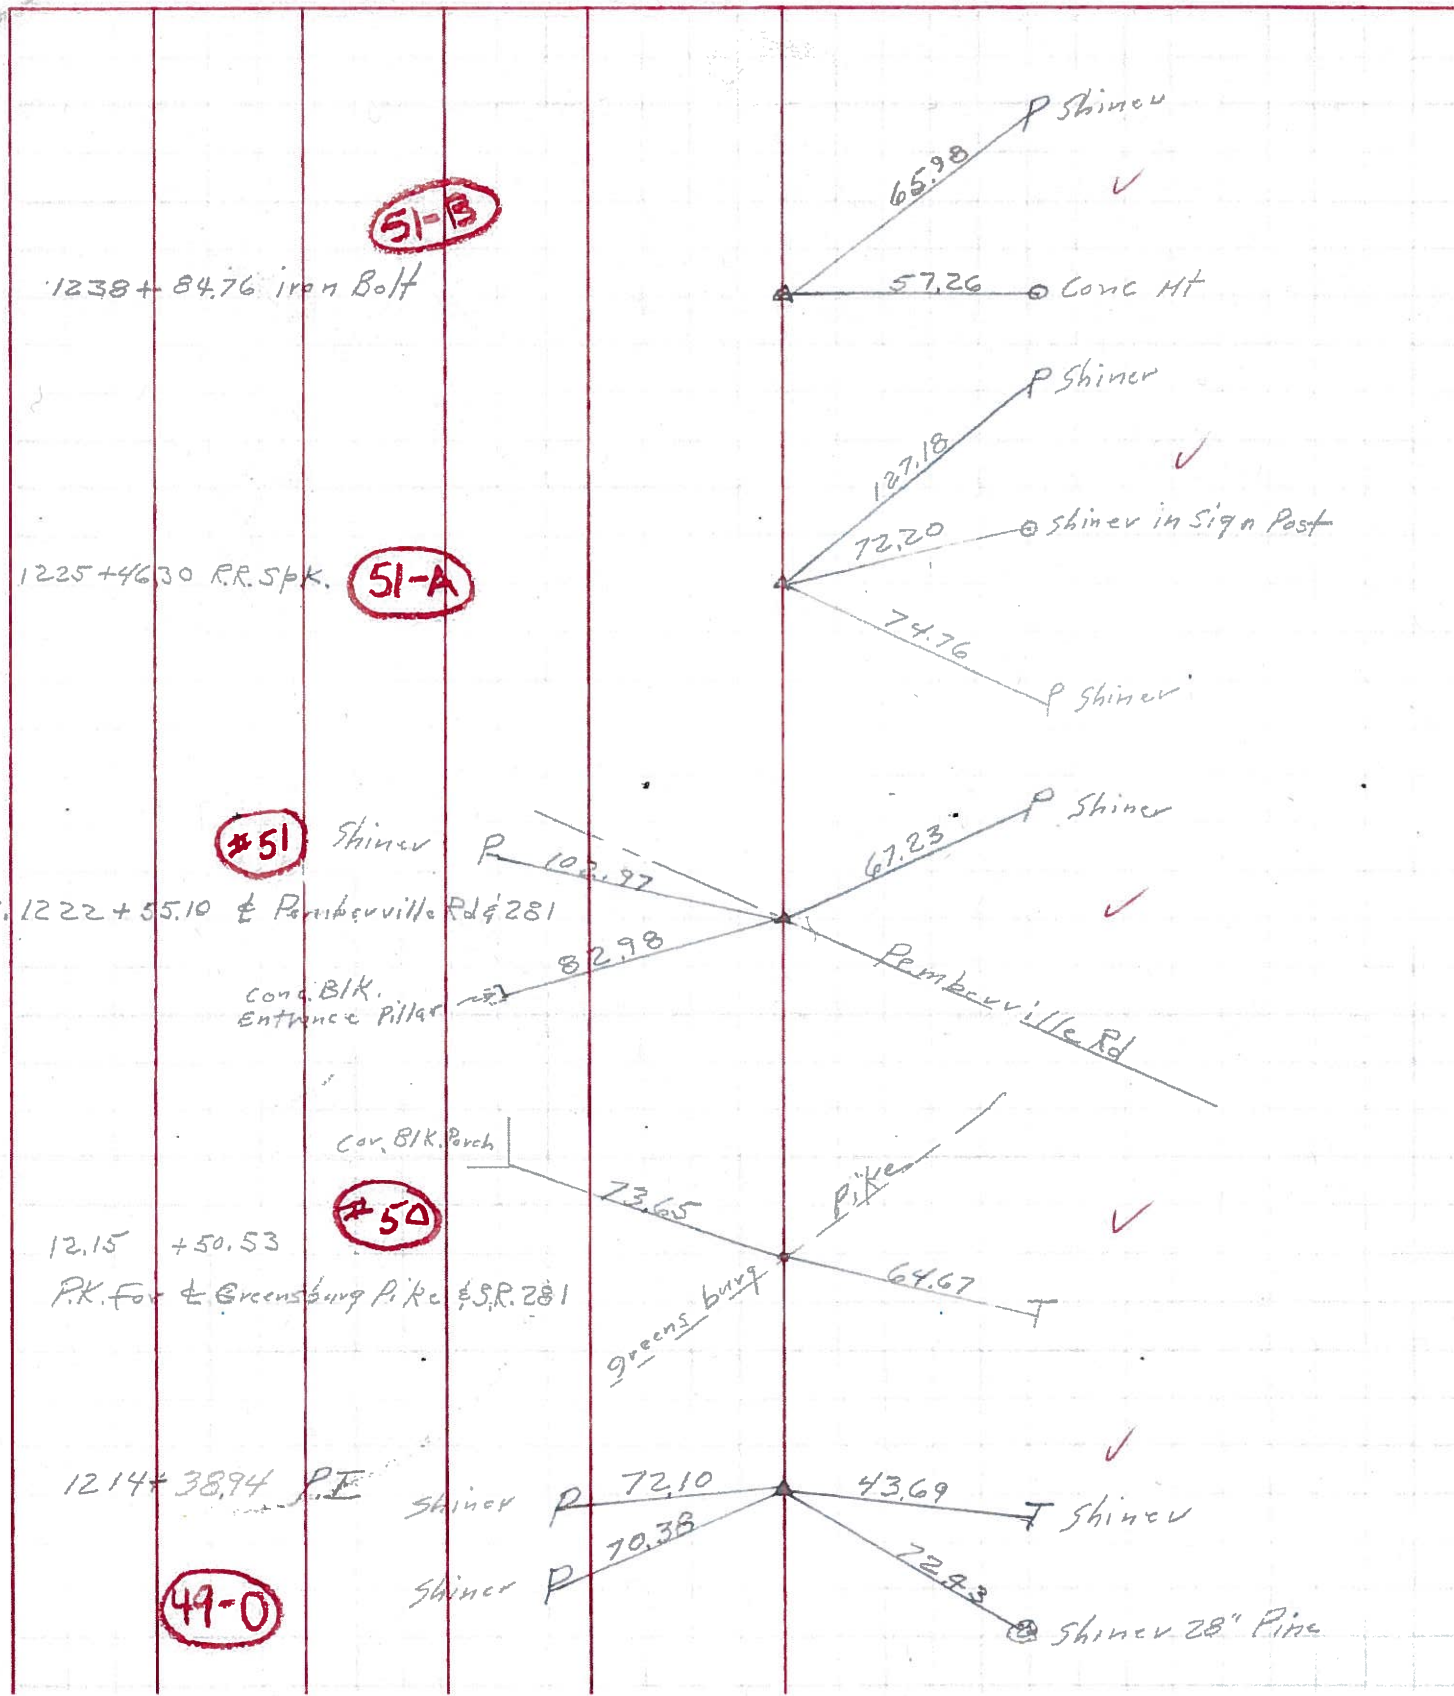 P Shiner
65.98
51-B
1238+84.76 iron Bolt
57.26
Conc Mt
P Shiner
127.18
72.20
Shiner in Sign Post
1225+46.30 R.R. Spk.
51-A
74.76
P Shiner
#51
Shiner P
102.97
67.23
P Shiner
1222+55.10 ℄ Pemberville Rd & 281
82.98
Conc. Blk.
Entrance Pillar
Pemberville Rd
Cor. Blk. Porch
73.65
Pike
#50
12.15 +50.53
P.K. For ℄ Greensburg Pike & S.R. 281
greens burg
64.67
T
1214+38.94 P.I
Shiner P
72.10
43.69
T Shiner
70.38
Shiner P
72.43
49-O
Shiner 28" Pine